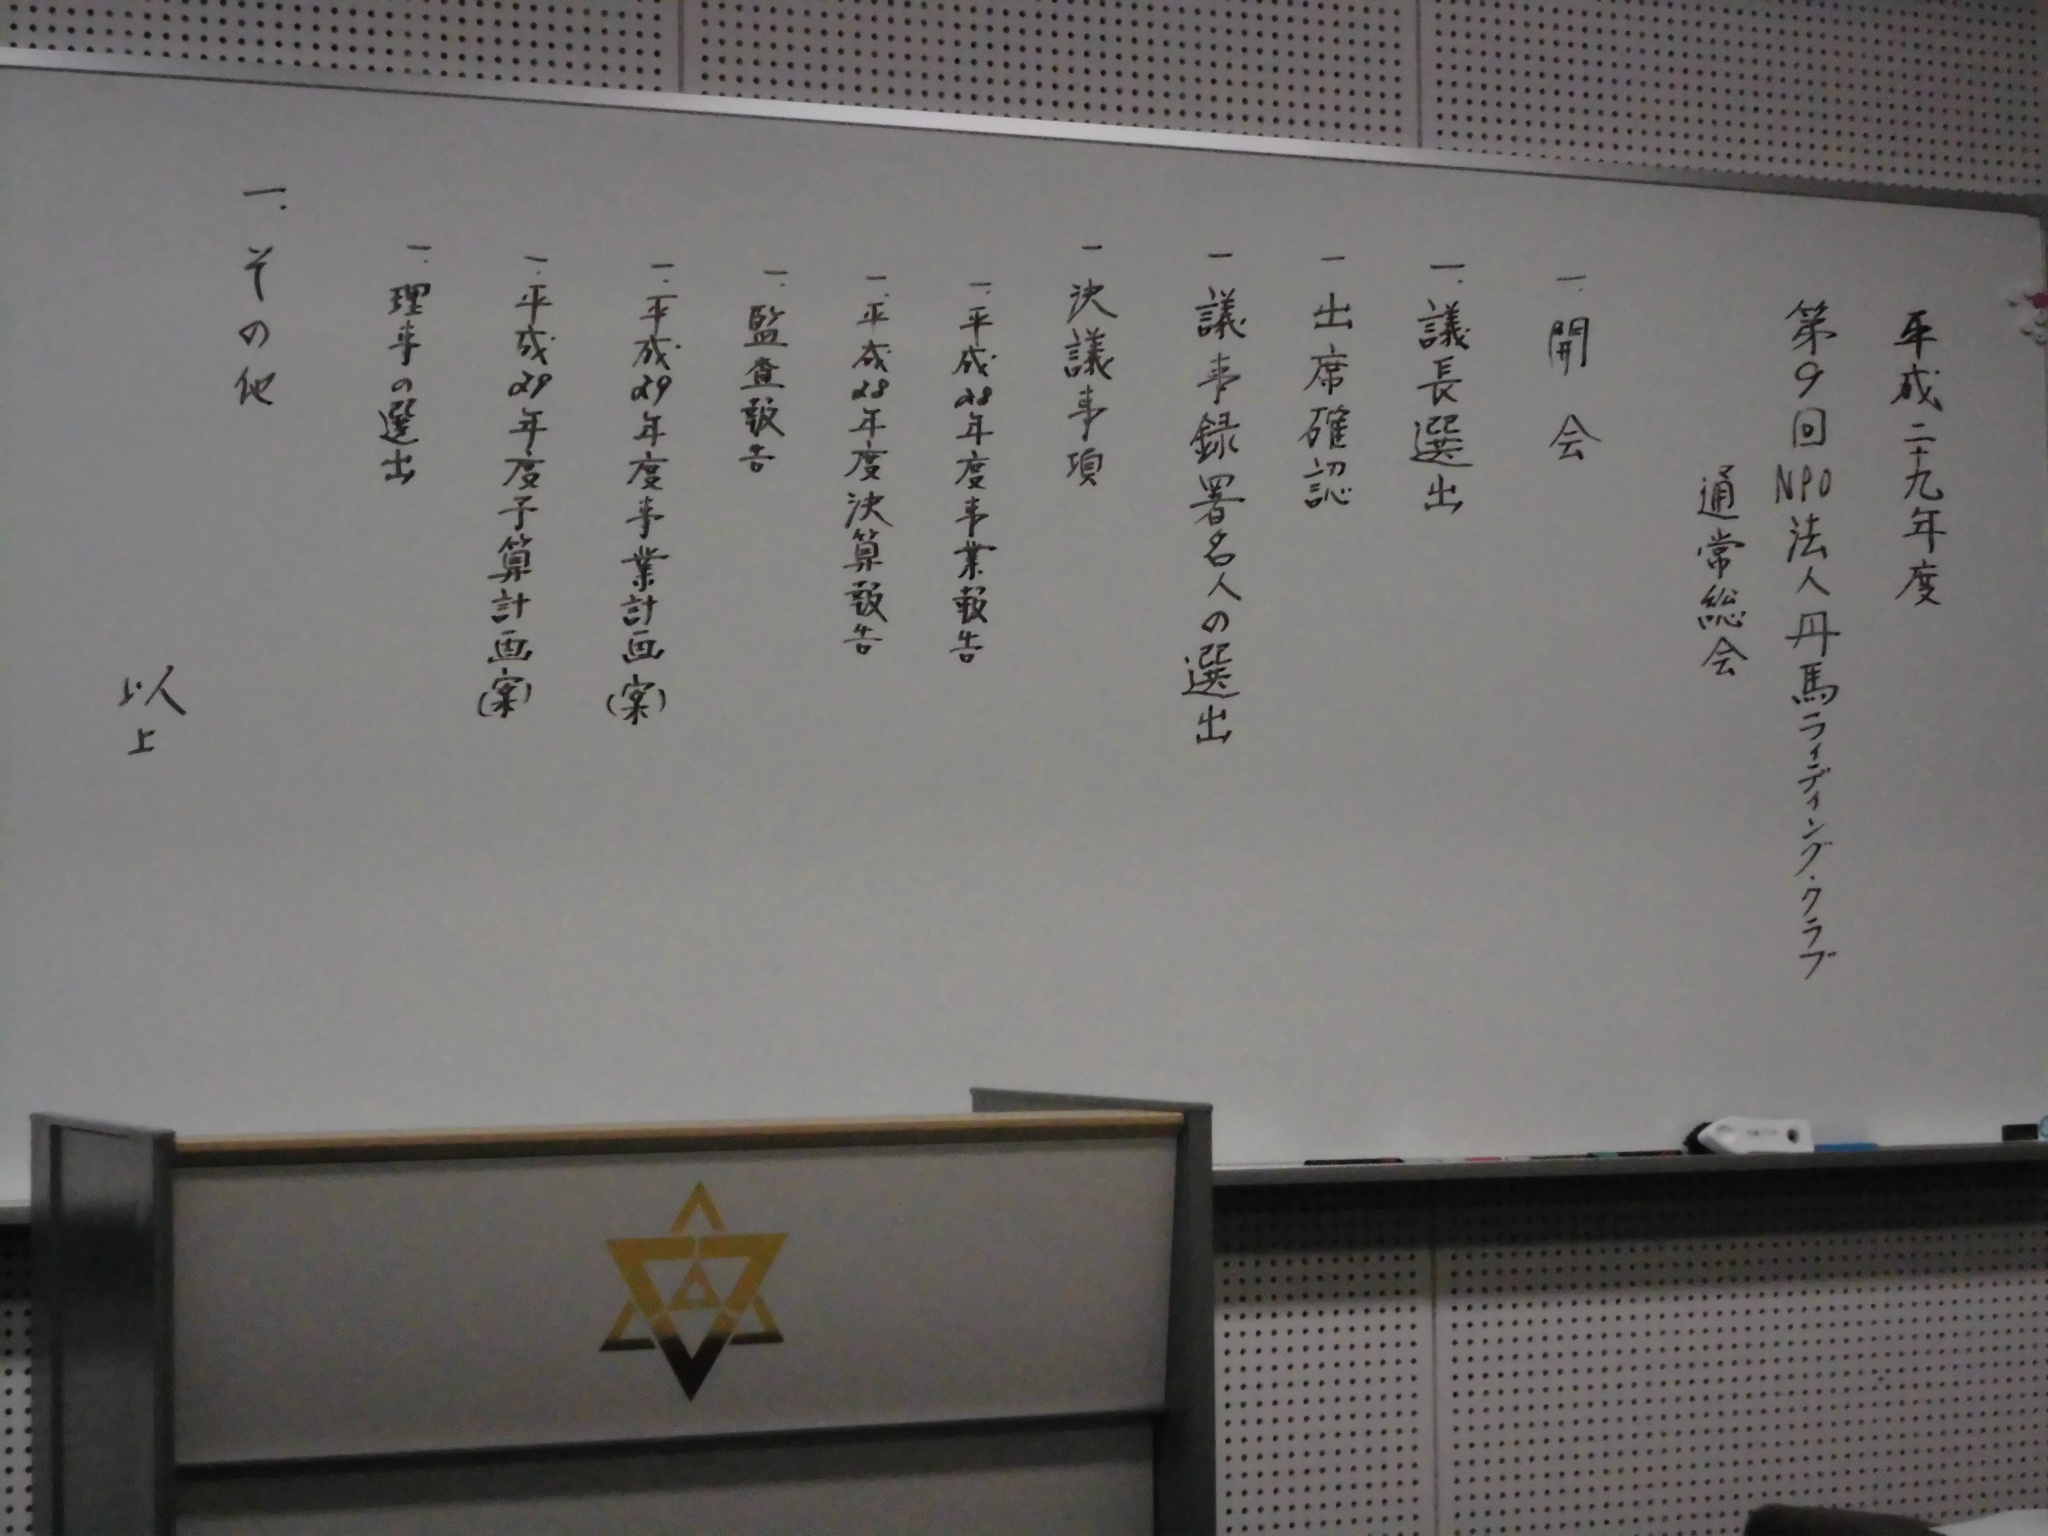 平成二十九年度
第9回NPO法人丹馬ライディング・クラブ
通常総会
一.開会
一.議長選出
一 出席確認
一 議事録署名人の選出
一 決議事項
一.平成28年度事業報告
一.平成28年度決算報告
一.監査報告
一.平成29年度事業計画(案)
一.平成29年度予算計画(案)
一.理事の選出
一.その他
以上